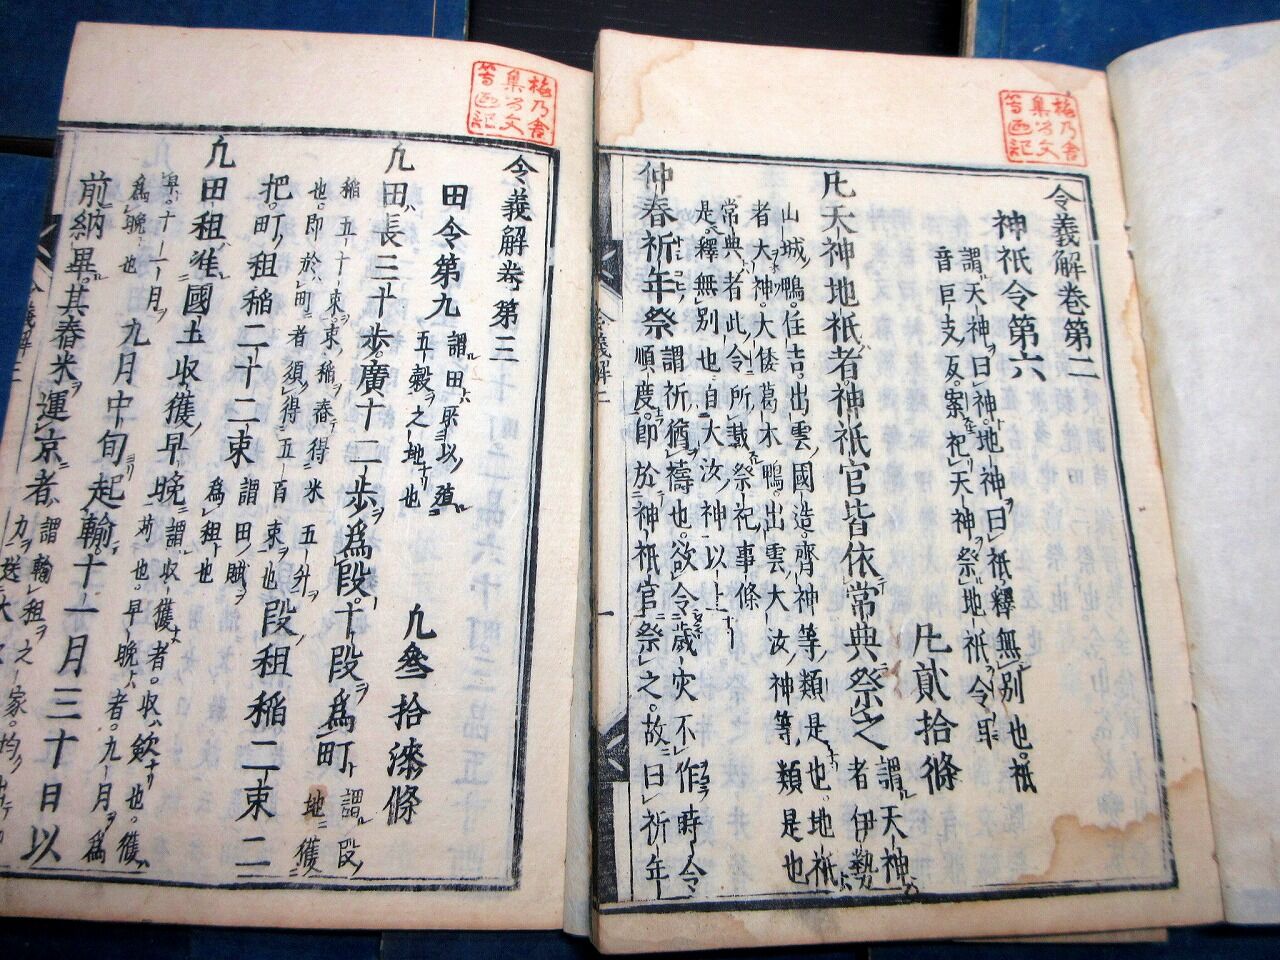 梅乃舎
令義解卷第二
神祇令第六
謂天神曰神。地神曰祇。釋無別也。祇
音巨支反。案祀天神祭地祇令耳
凡貳拾條
凡天神地祇者。神祇官皆依常典祭之
謂天神
者伊勢
山城鴨。住吉。出雲國造。齊神等類是也。地祇
者大神。大倭葛木鴨。出雲大汝神等類是也
常典者此令所載祭祀事條
是釋無別也自大汝神以上
仲春祈年祭
謂祈猶禱也。欲令歳灾不作時令
順度。即於神祇官祭之。故曰祈年
令義解二
梅乃舎
令義解卷第三
田令第九
謂田以殖
五穀之地也
凡叄拾漆條
凡田長三十歩。廣十二歩爲段。十段爲町
謂段
地獲
稲五十束。束稲舂得米五升
也。即於町者須得五百束也
段租稲二束二
把。町租稲二十二束
謂田賦
爲租也
凡田租准國土収獲早晩
謂収獲者。収歛也。獲
苅也。早晩者。九月爲
早。十一月
爲晩也
九月中旬起輸。十一月三十日以
前納畢。其舂米運京者
謂輸租之家。均